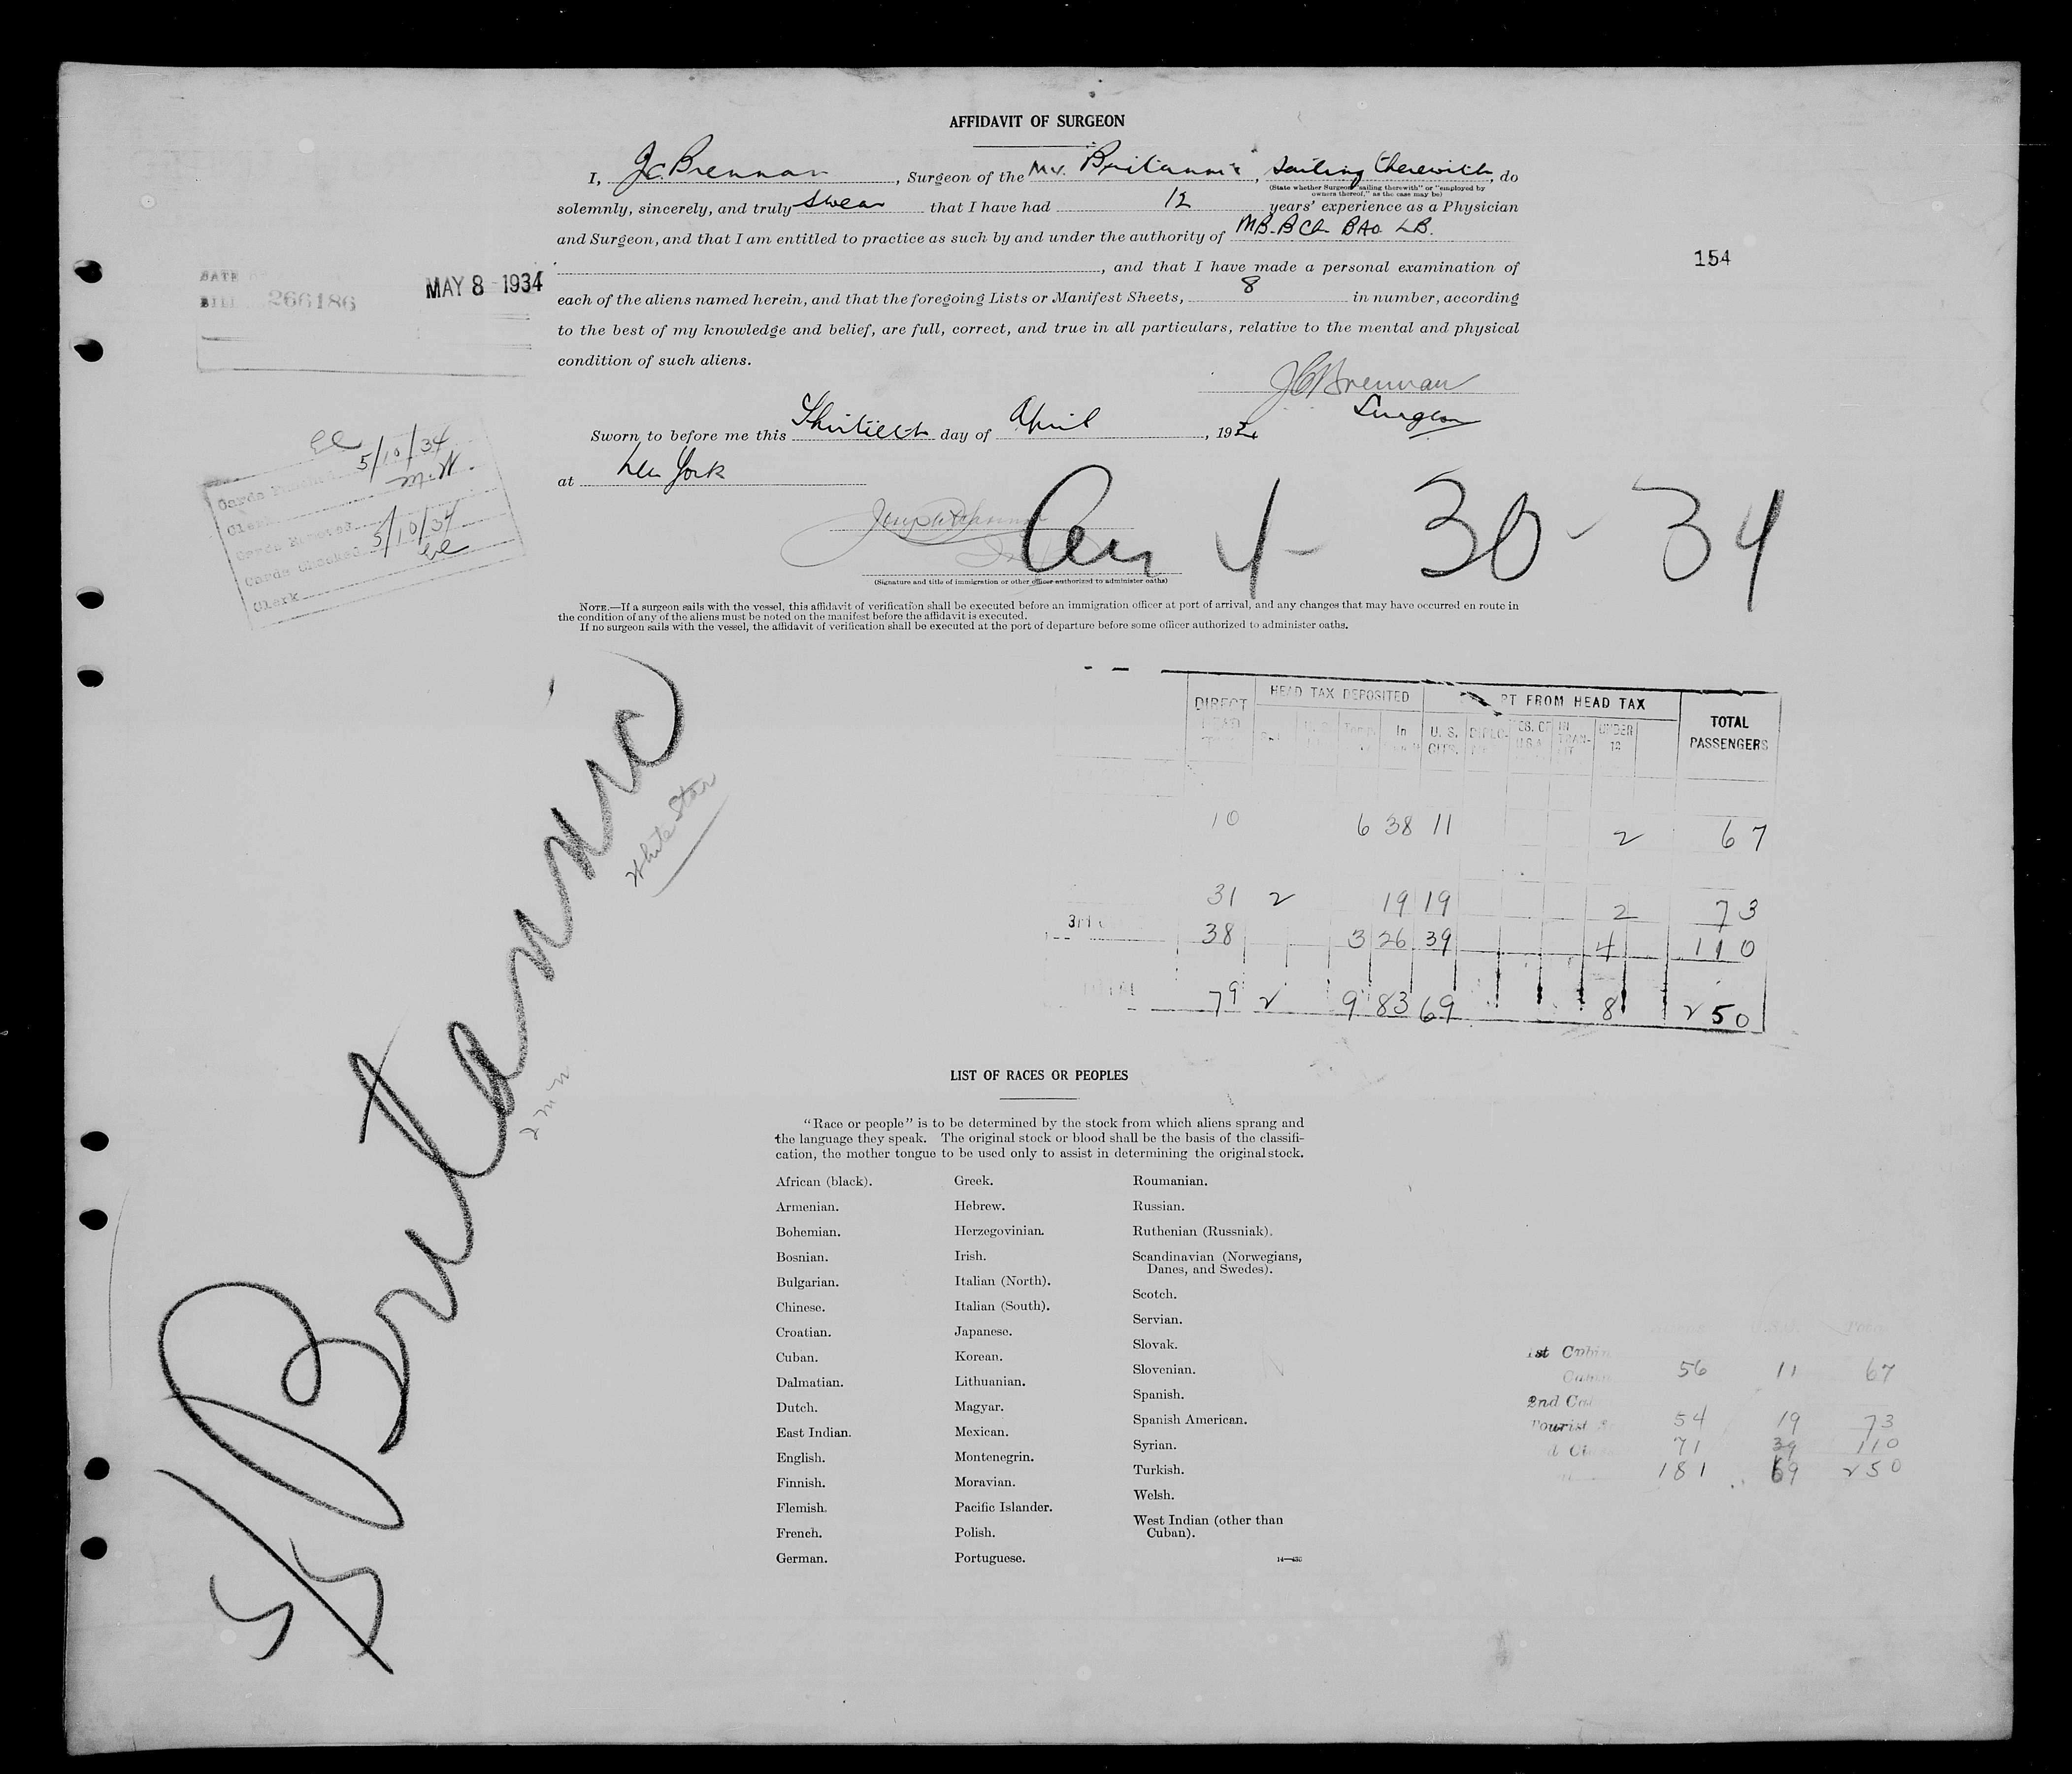 AFFIDAVIT OF SURGEON
I, J.C. Brennan, Surgeon of the M.V. Britannic, sailing therewith, do
(State whether Surgeon "sailing therewith" or "employed by
owners thereof," as the case may be)
solemnly, sincerely, and truly swear that I have had 12 years' experience as a Physician
and Surgeon, and that I am entitled to practice as such by and under the authority of MB. BCh BAO LB.
154
, and that I have made a personal examination of
DATE
BILL 266186
MAY 8 1934
each of the aliens named herein, and that the foregoing Lists or Manifest Sheets, 8 in number, according
to the best of my knowledge and belief, are full, correct, and true in all particulars, relative to the mental and physical
condition of such aliens.
JCBrennan
Surgeon
Sworn to before me this Thirtieth day of April, 1934
at New York
5/10/34
Clerk
Cards Checked 5/10/34
Clerk
4 - 30 - 34
(Signature and title of immigration or other officer authorized to administer oaths)
NOTE.—If a surgeon sails with the vessel, this affidavit of verification shall be executed before an immigration officer at port of arrival, and any changes that may have occurred en route in
the condition of any of the aliens must be noted on the manifest before the affidavit is executed.
If no surgeon sails with the vessel, the affidavit of verification shall be executed at the port of departure before some officer authorized to administer oaths.
S/S Britannic
White Star
DIRECT HEAD HEAD TAX DEPOSITED PT FROM HEAD TAX TOTAL PASSENGERS
In U. S. CITS. DIPLO- IN TRAN- UNDER 12
10 6 38 11 2 67
31 2 19 19 2 73
38 3 26 39 4 110
TOTAL 79 2 9 83 69 8 250
LIST OF RACES OR PEOPLES
"Race or people" is to be determined by the stock from which aliens sprang and
the language they speak. The original stock or blood shall be the basis of the classifi-
cation, the mother tongue to be used only to assist in determining the original stock.
African (black).
Armenian.
Bohemian.
Bosnian.
Bulgarian.
Chinese.
Croatian.
Cuban.
Dalmatian.
Dutch.
East Indian.
English.
Finnish.
Flemish.
French.
German.
Greek.
Hebrew.
Herzegovinian.
Irish.
Italian (North).
Italian (South).
Japanese.
Korean.
Lithuanian.
Magyar.
Mexican.
Montenegrin.
Moravian.
Pacific Islander.
Polish.
Portuguese.
Roumanian.
Russian.
Ruthenian (Russniak).
Scandinavian (Norwegians,
Danes, and Swedes).
Scotch.
Servian.
Slovak.
Slovenian.
Spanish.
Spanish American.
Syrian.
Turkish.
Welsh.
West Indian (other than
Cuban).
1st Cabin
56 11 67
2nd
Tourist 54 19 73
71 39 110
181 69 250